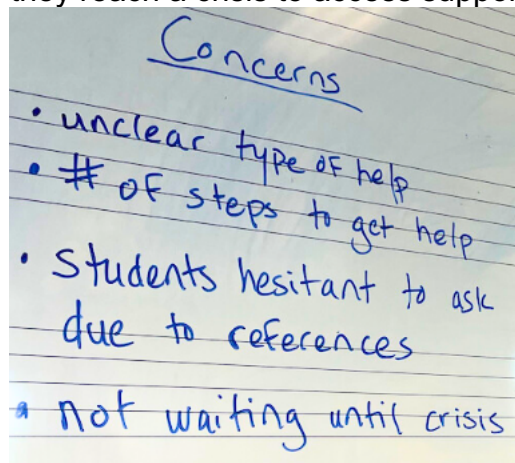 they reach a crisis to access suppor
Concerns
• unclear type of help
• # of steps to get help
• Students hesitant to ask
due to references
• not waiting until crisis